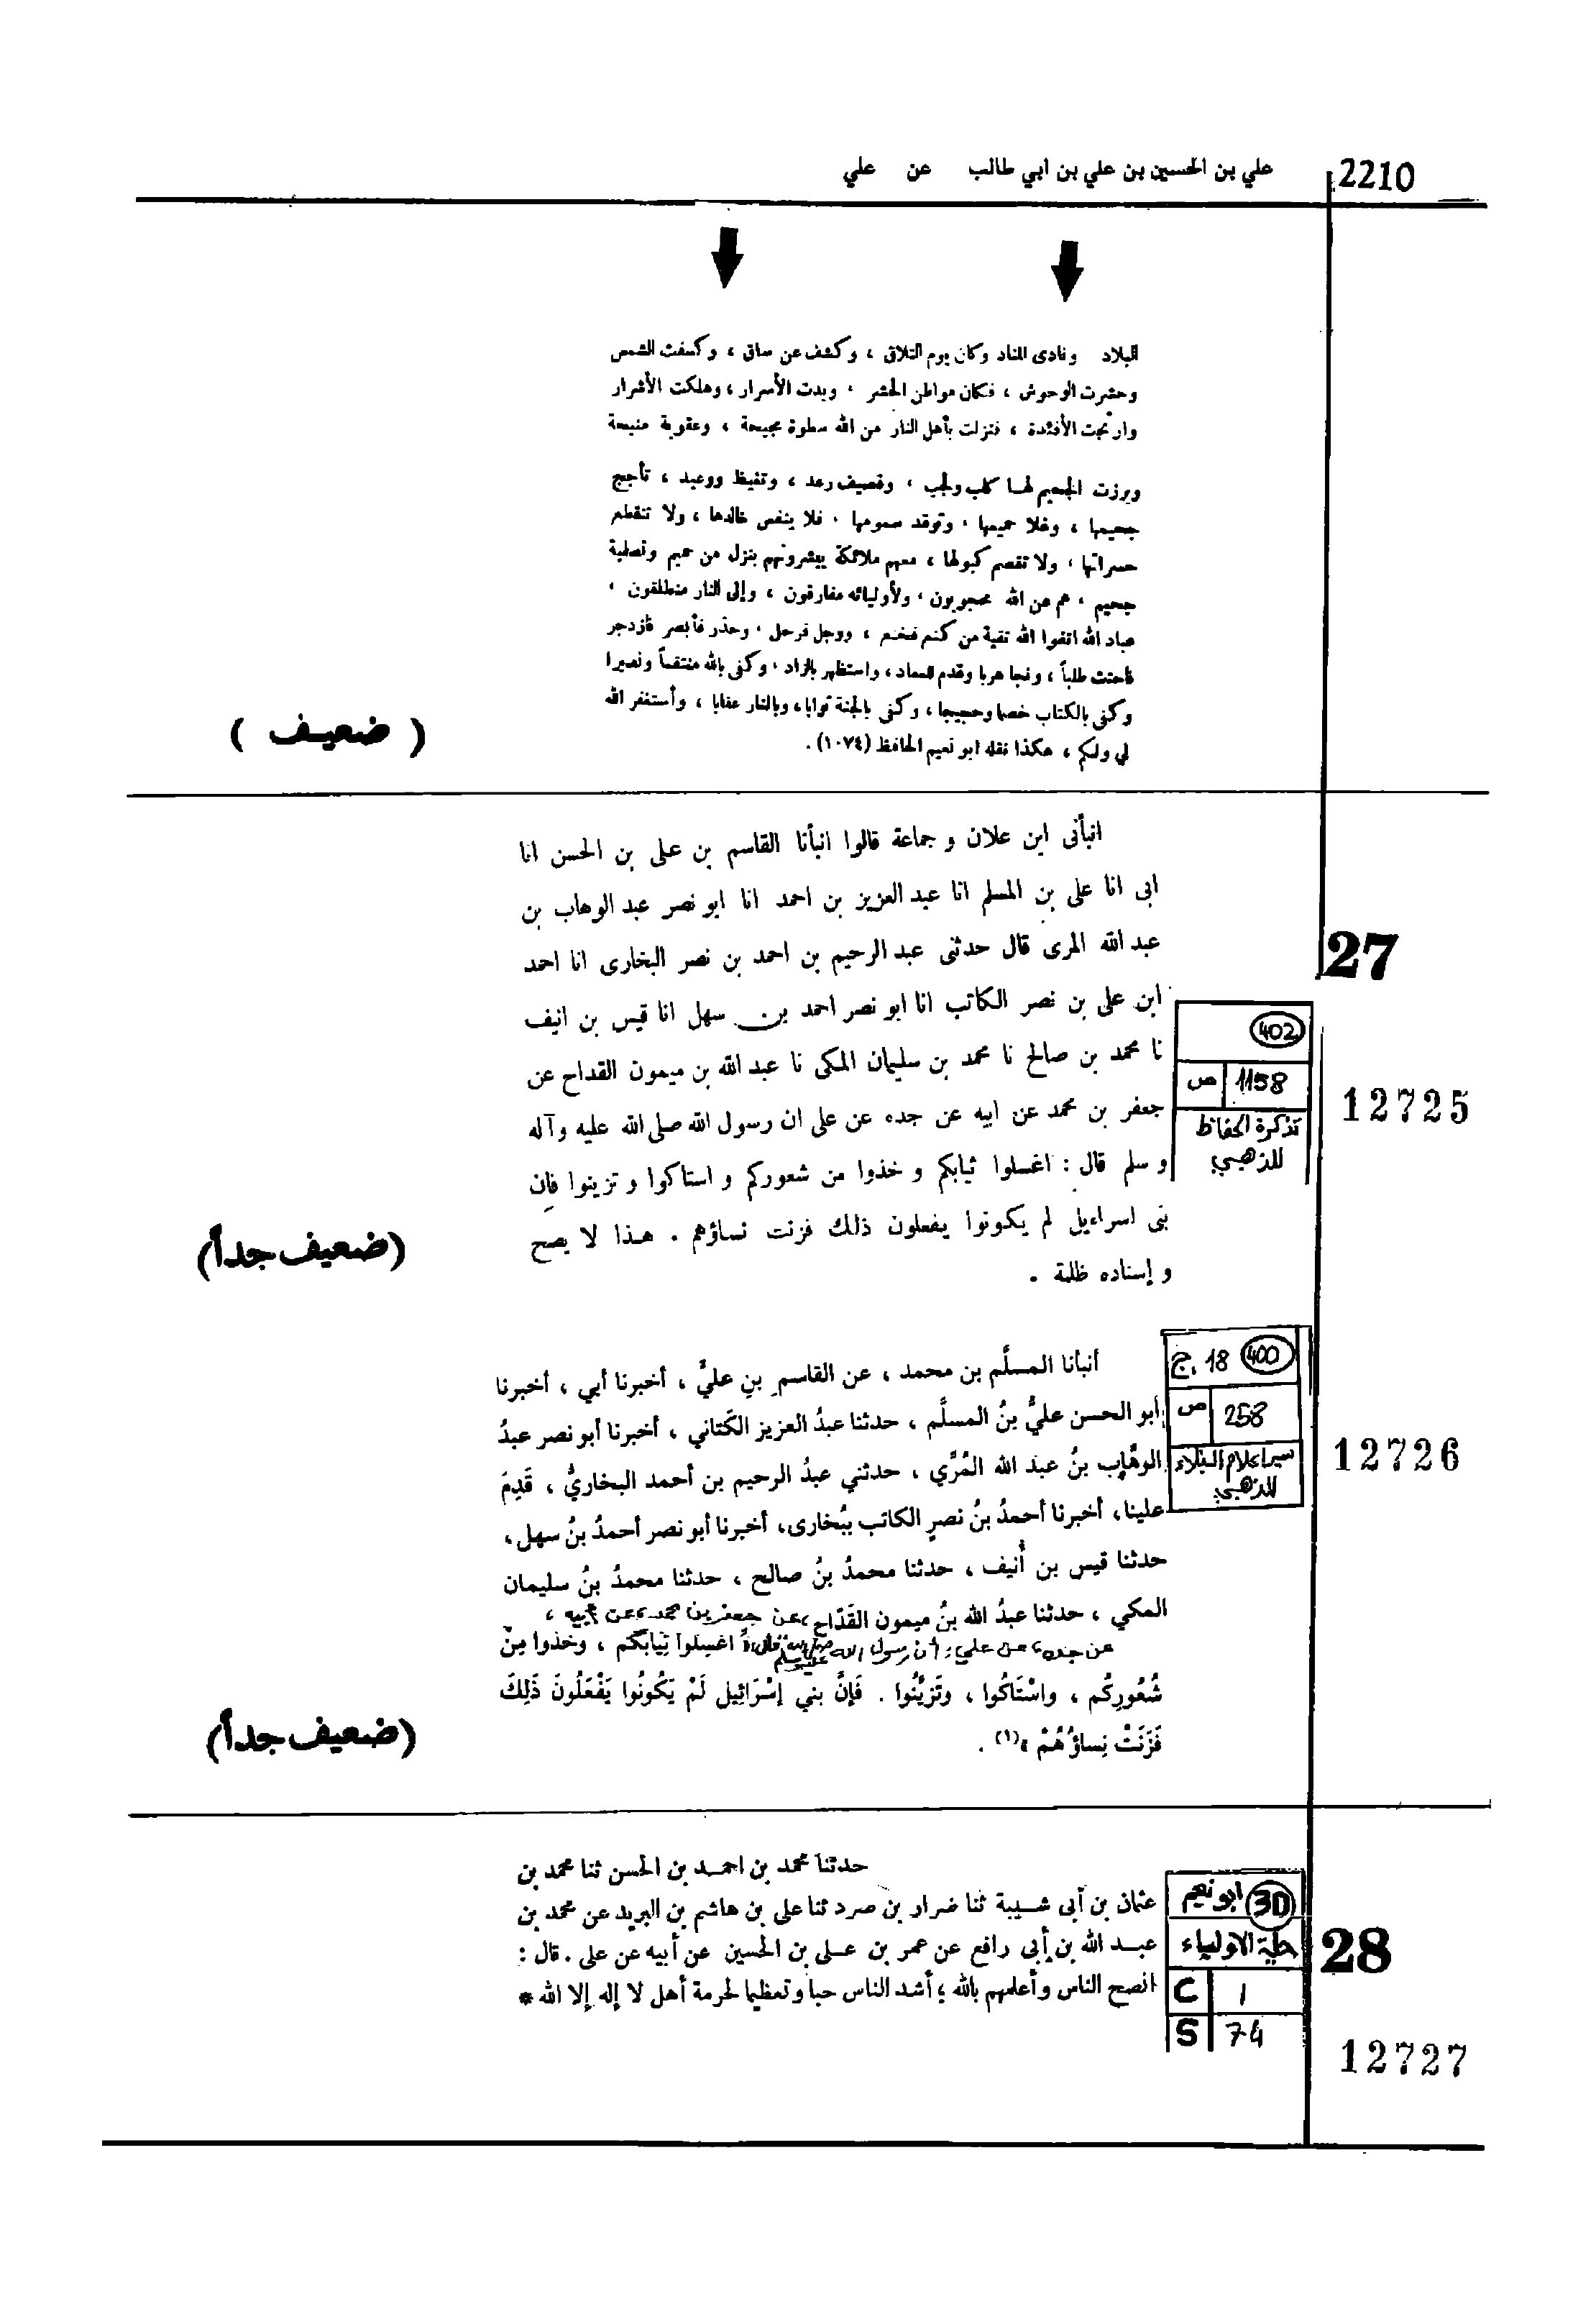 2210
علي بن الحسين بن علي بن ابي طالب عن علي
البلاد ونادى المناد وكان يوم التلاق ، وكشف عن ساق ، وكسفت الشمس
وحشرت الوحوش ، فكان مواطن الحشر ، وبدت الأسرار ، وهلكت الأشرار
وارتجت الأفئدة ، فنزلت بأهل النار من الله سطوة مجيحة ، وعقوبة منيحة
وبرزت الجحيم لها كلب ولجب ، وقصيف رعد ، وتغيظ ووعيد ، تأجج
جحيمها ، وغلا حميمها ، وتوقد سمومها ، فلا ينفس خالدها ، ولا تنقطع
حسراتها ، ولا تقصم كبولها ، معهم ملائكة يبشرونهم بنزل من حميم وتصلية
جحيم ، هم عن الله محجوبون ، ولأوليائه مفارقون ، وإلى النار منطلقون ،
عباد الله اتقوا الله تقية من كنع فخنع ، ووجل فرحل ، وحذر فأبصر فازدجر
فاحتث طلباً ، ونجا هربا وقدم للمعاد ، واستظهر بالزاد ، وكفى بالله منتقماً ونصيرا
وكفى بالكتاب خصما وحجيجا ، وكفى بالجنة ثوابا ، وبالنار عقابا ، وأستغفر الله
لي ولكم ، هكذا نقله ابو نعيم الحافظ (١٠٧٤) .
( ضعيف )
27
12725
402
ص 1158
تذكرة الحفاظ
للذهبي
انبأنى ابن علان و جماعة قالوا انبأنا القاسم بن على بن الحسن انا
ابى انا على بن المسلم انا عبد العزيز بن احمد انا ابو نصر عبد الوهاب بن
عبد الله المرى قال حدثنى عبد الرحيم بن احمد بن نصر البخارى انا احمد
ابن على بن نصر الكاتب انا ابو نصر احمد بن سهل انا قيس بن انيف
نا محمد بن صالح نا محمد بن سليمان المكى نا عبد الله بن ميمون القداح عن
جعفر بن محمد عن ابيه عن جده عن على ان رسول الله صلى الله عليه وآله
و سلم قال : اغسلوا ثيابكم و خذوا من شعوركم و استاكوا و تزينوا فإن
بنى اسراءيل لم يكونوا يفعلون ذلك فزنت نساؤهم . هذا لا يصح
و إسناده ظلمة .
(ضعيف جداً)
12726
400 ج. 18
ص 258
سير اعلام النبلاء
للذهبي
أنبأنا المسلَّم بن محمد ، عن القاسم بنِ عليٍّ ، أخبرنا أبي ، أخبرنا
أبو الحسن عليُّ بنُ المسلَّم ، حدثنا عبدُ العزيز الكَتاني ، أخبرنا أبو نصر عبدُ
الوهَّاب بنُ عبد الله المُرِّي ، حدثني عبدُ الرحيم بن أحمد البخاريُّ ، قَدِمَ
علينا، أخبرنا أحمدُ بنُ نصرٍ الكاتب ببُخارى، أخبرنا أبو نصر أحمدُ بنُ سهل،
حدثنا قيس بن أُنيف ، حدثنا محمدُ بنُ صالح ، حدثنا محمدُ بنُ سليمان
المكي ، حدثنا عبدُ الله بنُ ميمون القَدّاح، عن جعفر بن محمد، عن أبيه ،
عن جده، عن علي، أن رسول الله صلى الله عليه وسلم قال: اغسِلوا ثِيابَكُم ، وخُذوا مِنْ
شُعُورِكُم ، واسْتَاكُوا ، وتَزيَّنُوا . فَإنَّ بني إسْرَائيل لَمْ يَكُونُوا يَفْعَلُونَ ذَلِكَ
فَزَنَتْ نِساؤُهُمْ »(١) .
(ضعيف جداً)
28
12727
30 ابو نعيم
حلية الاولياء
C 1
S 74
حدثنا محمد بن احمد بن الحسن ثنا محمد بن
عثمان بن أبى شيبة ثنا ضرار بن صرد ثنا على بن هاشم بن البريد عن محمد بن
عبد الله بن أبى رافع عن عمر بن على بن الحسين عن أبيه عن على . قال :
انصح الناس وأعلمهم بالله ؛ أشد الناس حبا وتعظيما لحرمة أهل لا إله إلا الله *